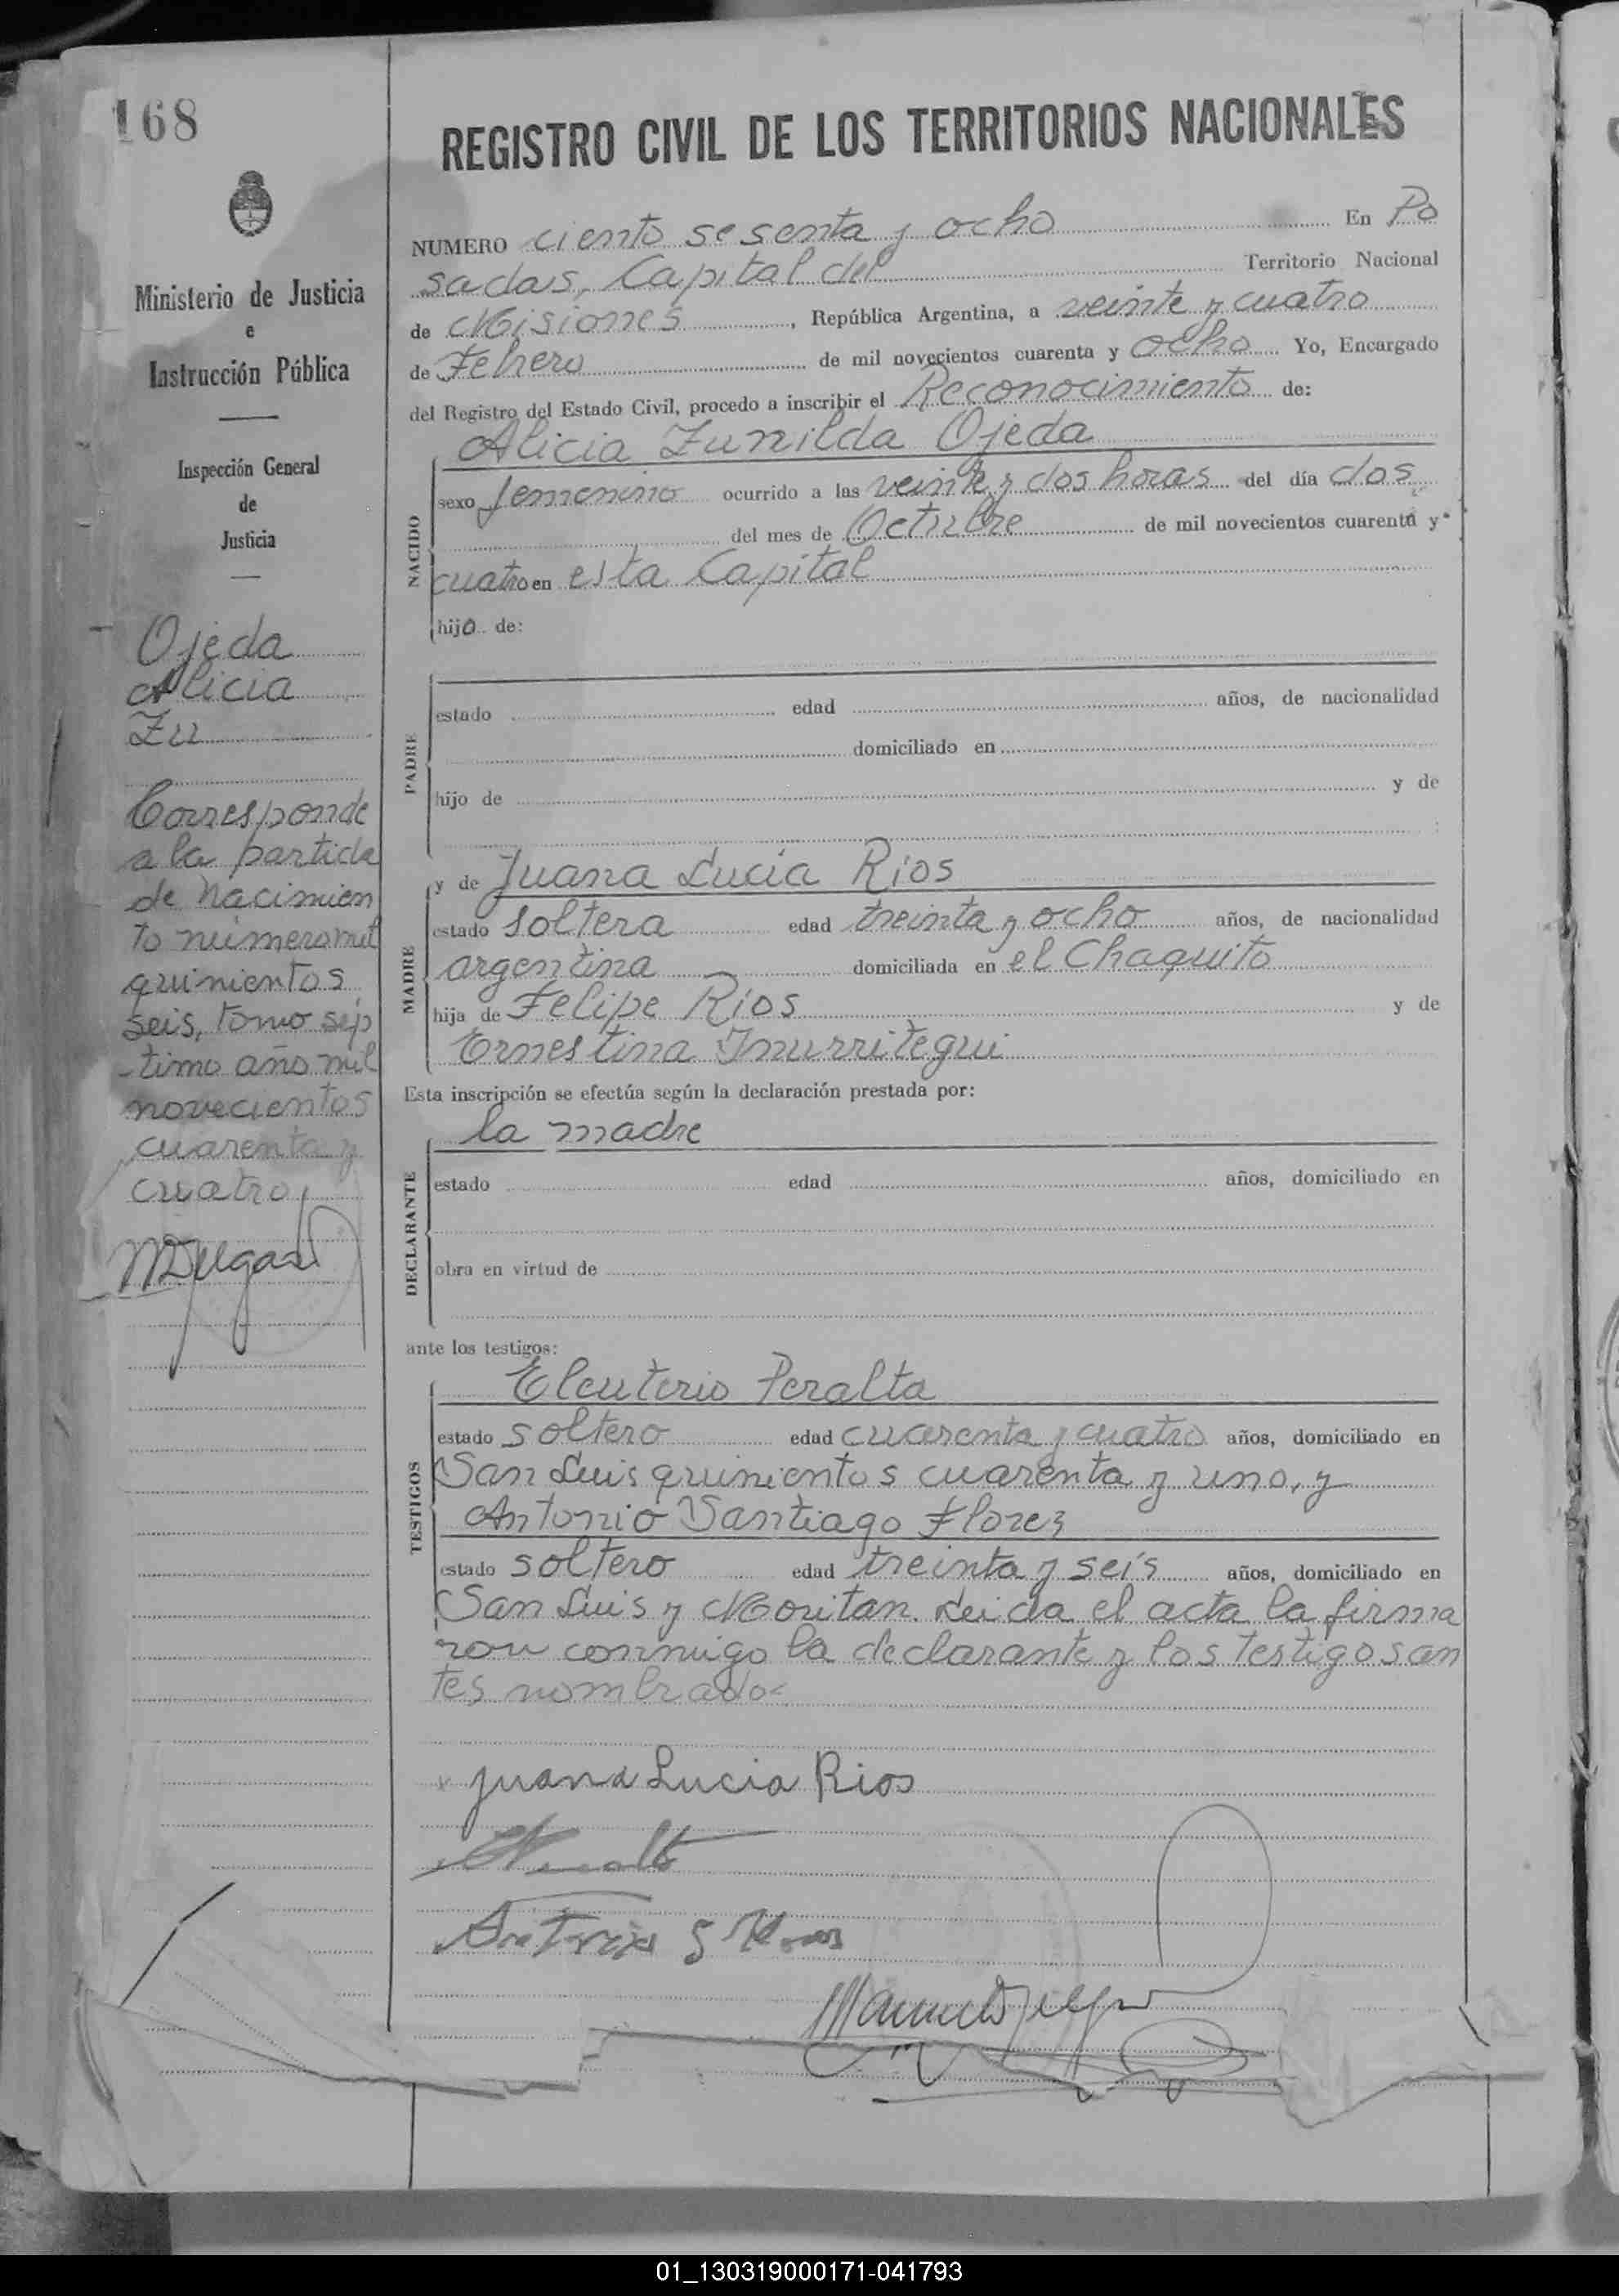 168
Ministerio de Justicia
e
Instrucción Pública
Inspección General
de
Justicia
Ojeda
Alicia
Zu
Corresponde
a la partida
de nacimien
to número mil
quinientos
seis, tomo sép
timo año mil
novecientos
cuarenta y
cuatro
REGISTRO CIVIL DE LOS TERRITORIOS NACIONALES
NUMERO ciento sesenta y ocho En Po
sadas, Capital del Territorio Nacional
de Misiones, República Argentina, a veinte y cuatro
de Febrero de mil novecientos cuarenta y ocho Yo, Encargado
del Registro del Estado Civil, procedo a inscribir el Reconocimiento de:
Alicia Zunilda Ojeda
NACIDO
sexo femenino ocurrido a las veinte y dos horas del día dos
del mes de Octubre de mil novecientos cuarenta y
cuatro en esta Capital
hija de:
PADRE
estado edad años, de nacionalidad
domiciliado en
hijo de y de
MADRE
y de Juana Lucía Rios
estado soltera edad treinta y ocho años, de nacionalidad
argentina domiciliada en el Chaquito
hija de Felipe Rios y de
Ernestina Inurritegui
Esta inscripción se efectúa según la declaración prestada por:
la madre
DECLARANTE
estado edad años, domiciliado en
obra en virtud de
ante los testigos:
TESTIGOS
Eleuterio Peralta
estado soltero edad cuarenta y cuatro años, domiciliado en
San Luis quinientos cuarenta y uno, y
Antonio Santiago Florez
estado soltero edad treinta y seis años, domiciliado en
San Luis y Moritan. Leida el acta la firma
ron conmigo la declarante y los testigos an
tes nombrados
Juana Lucia Rios
01_130319000171-041793